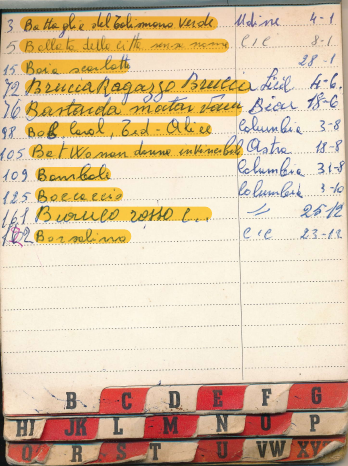 3 Battaglia del Talismano Verde Udine 4-1
5 Ballata della città senza nome CIC 8-1
15 Boia scarlatto 28-1
72 Brucia Ragazzo Brucia Lid 4-6
76 Bastardo 18-6
98 Bob Carol, Ted-Alice Columbia 3-8
105 Bat Woman donna invincibile Astra 18-8
109 Bambole Columbia 31-8
125 Boccaccio Columbia 3-10
161 Bianco rosso e... 25-12
162 Borsalino CIC 23-12
B C D E F G
HI JK L M N O P
Q R S T U VW XY